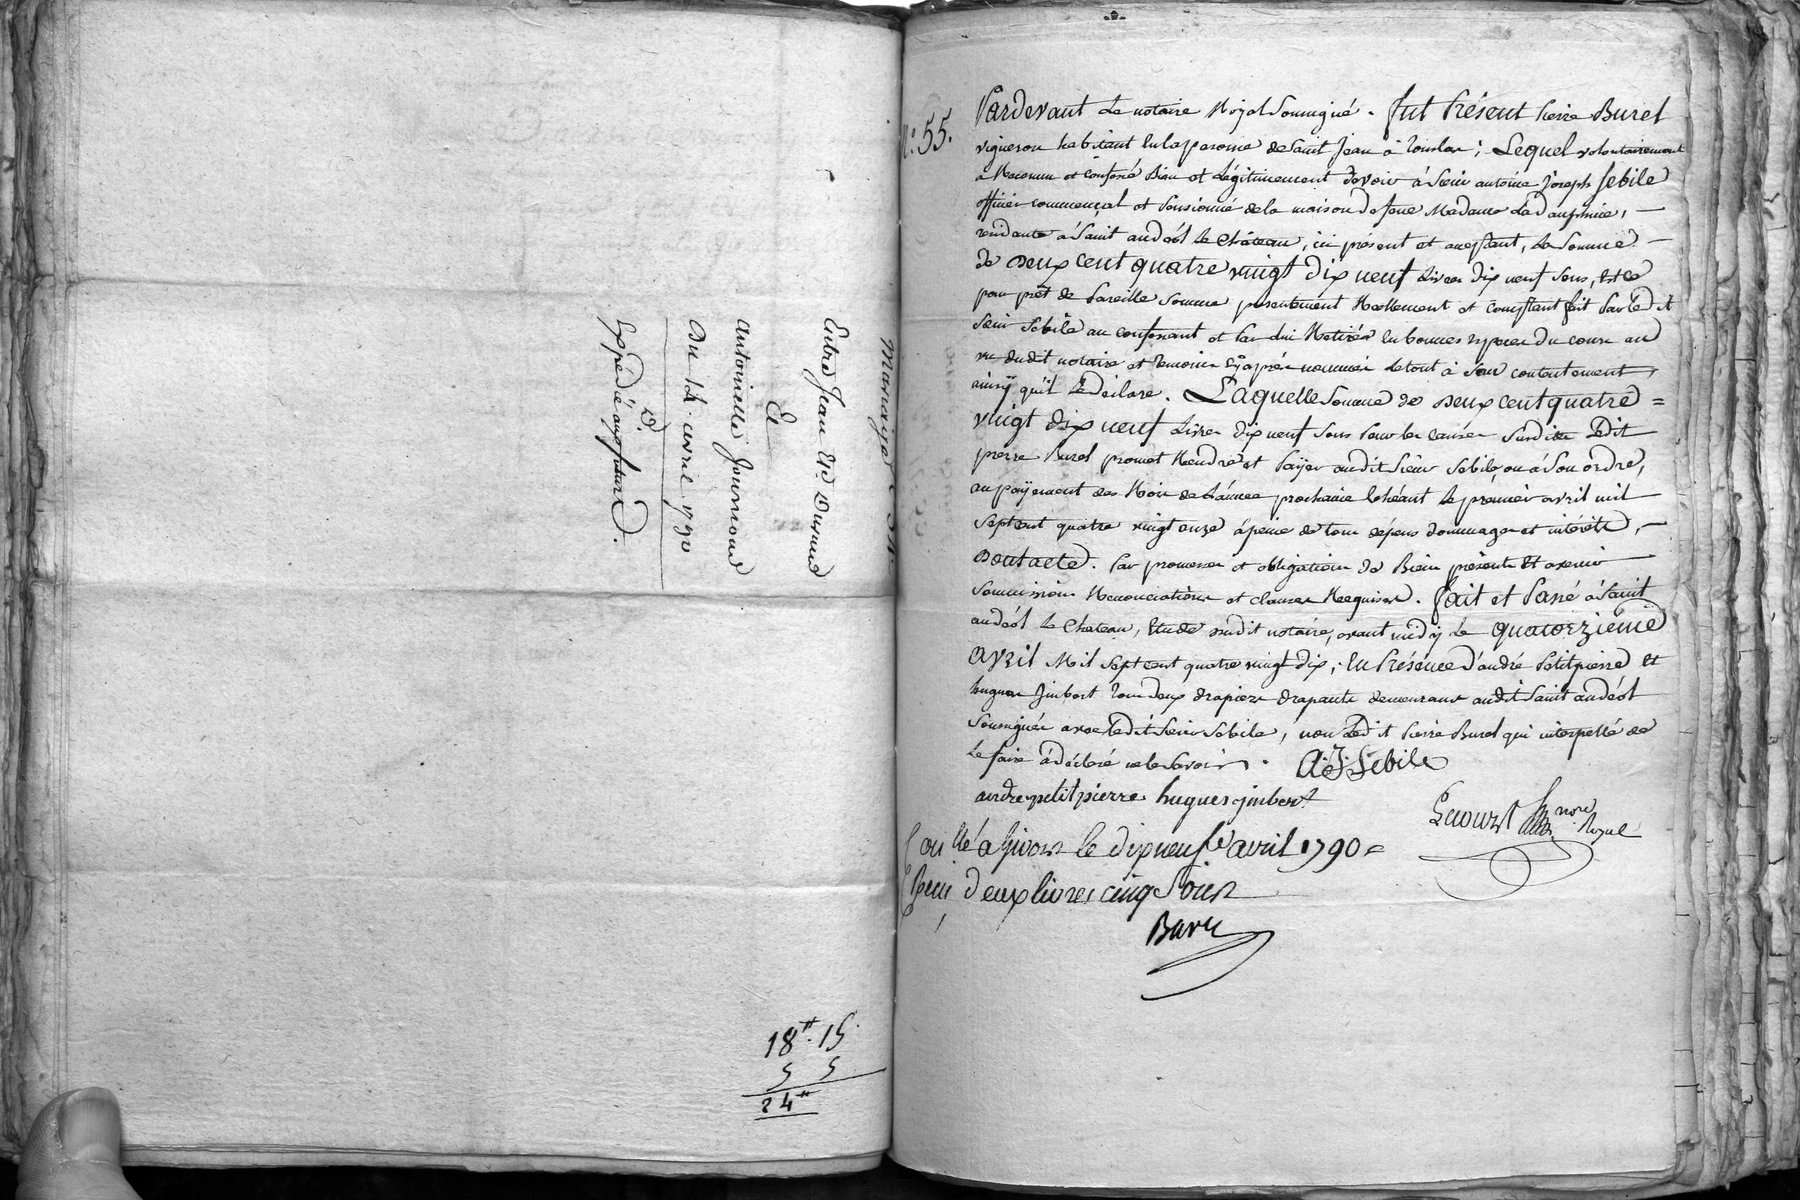 Mariage
Entre Jean Et. Durand
Et
antoinette Journoud
Du 14. avril 1790
Expédié aux futurs.
18.tt 15
5 5
24tt
N.° 55.
Pardevant Le notaire Royal Soussigné. fut Présent Pierre Burel
vigneron habitant en la paroisse de Saint Jean à Touslas; Lequel volontairement
a Reconnu et confessé Bien et Légitimement devoir à Sieur antoine Joseph Sebile
officier commençal et Pensionné de la maison de feue Madame La dauphine,
residante à Saint andéol Le Château, ici présent et acceptant, La Somme
de Deux cent quatre vingt dix neuf Livres dix neuf Sous, Et ce
pour prêt de Pareille Somme présentement Reellement et comptant fait Par Led it
Sieur Sebile au confessant et Par Lui Retirée En bonnes espèces du cours au
vu dudit notaire et temoins cÿaprès nommés Le tout à Son contentement
ainsÿ qu'il Le déclare. Laquelle Somme de Deux cent quatre =
vingt dix neuf Livres dix neuf Sous Pour les causes Susdites Ledit
pierre Burel promet Rendre et Païjer audit Sieur Sebile ou à Son ordre,
au païjement des Rois de L'année prochaine Echéant le premier avril mil
Sept cent quatre vingt onze à peine de tous dépens dommages et intérêts,
Dont acte. Par promesses et obligation de Biens présents Et avenir
Soumissions Renonciations et clauses Requises. fait et Passé à Saint
andéol Le Château, Etude dudit notaire, avant midÿ Le quatorzieme
avril Mil Sept cent quatre vingt dix, En Présence d'andré Petitpierre Et
hugues Jimbert tous deux drapiers drapants demeurans audit Saint andéol
Soussignés avec Ledit Sieur Sebile, non Led it Pierre Burel qui interpellé de
Le faire à déclaré ne le Savoir. A. J. Sebile
andre petitpierre hugues jimbert
nore Royal
a Givors le dix neuf avril 1790
Reçu deux livres cinq Sous